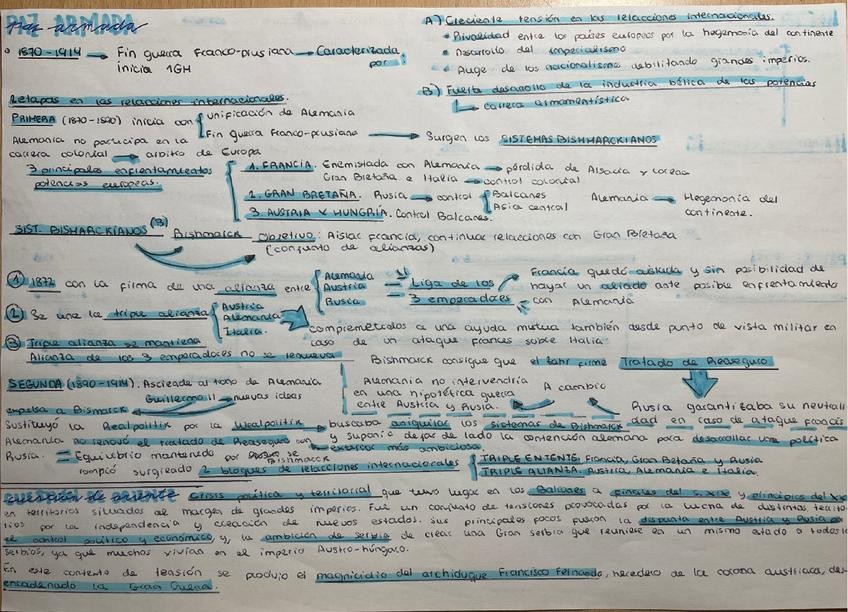 Paz armada
1870-1914 → Fin guerra franco-prusiana → Caracterizada por:
inicia 1GH
A) Creciente tensión en las relacciones internacionales.
• Rivalidad entre los países europeos por la hegemonía del continente
• Desarrollo del imperialismo
• Auge de los nacionalismos debilitando grandes imperios.
B) Fuerte desarrollo de la industria bélica de las potencias
carrera armamentística
2 etapas en las relaciones internacionales.
PRIMERA (1870-1890) inicia con unificación de Alemania
Fin guerra franco-prusiana → Surgen los SISTEMAS BISHMARCKIANOS
Alemania no participa en la
carrera colonial → arbitro de Europa
3 principales enfrentamientos
potencias europeas.
1. FRANCIA. Enemistada con Alemania → pérdida de Alsacia y Lorena
Gran Bretaña e Italia → control colonial
2. GRAN BRETAÑA. Rusia → control Balcanes
Asia central
Alemania → Hegemonía del
continente.
3. AUSTRIA Y HUNGRÍA. Control Balcanes.
SIST. BISHMARCKIANOS (B) Bishmarck Objetivo: Aislar Francia, continuar relacciones con Gran Bretaña
(conjunto de alianzas)
1 1872 con la firma de una alianza entre Alemania
Austria
Rusia
Liga de los
3 emperadores
Francia quedó aislada y sin posibilidad de
hayar un aliado ante posible enfrentamiento
con Alemania
2 Se une la triple alianza Austria
Alemania
Italia.
compremetidos a una ayuda mutua también desde punto de vista militar en
caso de un ataque frances sobre Italia
3 Triple alianza se mantiene
Alianza de los 3 emperadores no se renueva
Bishmarck consigue que el zahr firme Tratado de Reaseguro
Alemania no intervendría
en una hipotética guerra
entre Austria y Rusia.
A cambio
Rusia garantizaba su neutrali
dad en caso de ataque francés
SEGUNDA (1890-1914). Asciende al trono de Alemania
Guillermo II → nuevas ideas
expulsa a Bismarck
Sustituyó la Realpolitik por la Wealpolitik → buscaba aniquilar los sistemas de Bishmarck
y suponía dejar de lado la contención alemana para desarrollar una política
exterior más ambiciosa.
Alemania no renovó el tratado de Reaseguro con
Rusia. = Equilibrio mantenido por Bishmarck se
rompió surgieado 2 bloques de relacciones internacionales
TRIPLE ENTENTE. Francia, Gran Betaña y Rusia
TRIPLE ALIANZA. Austria, Alemania e Italia.
Cuestión de oriente Crisis política y territorial que tuvo lugar en los Balcanes a finales del s. XIX y principios del XX
en territorios situados al margen de grandes imperios. Fue un conjunto de tensiones provocadas por la lucha de distintos territo-
rios por la independencia y creación de nuevos estados. Sus principales focos fueron la disputa entre Austria y Rusia por
el control político y económico y, la ambición de serbia de crear una Gran serbia que reuniese en un mismo estado a todos l
serbios, ya que muchos vivían en el imperio Austro-húngaro.
En este contexto de tensión se produjo el magnicidio del archiduque Francisco Fernando, heredero de la corona austriaca, des-
encadenado la Gran Guerra.